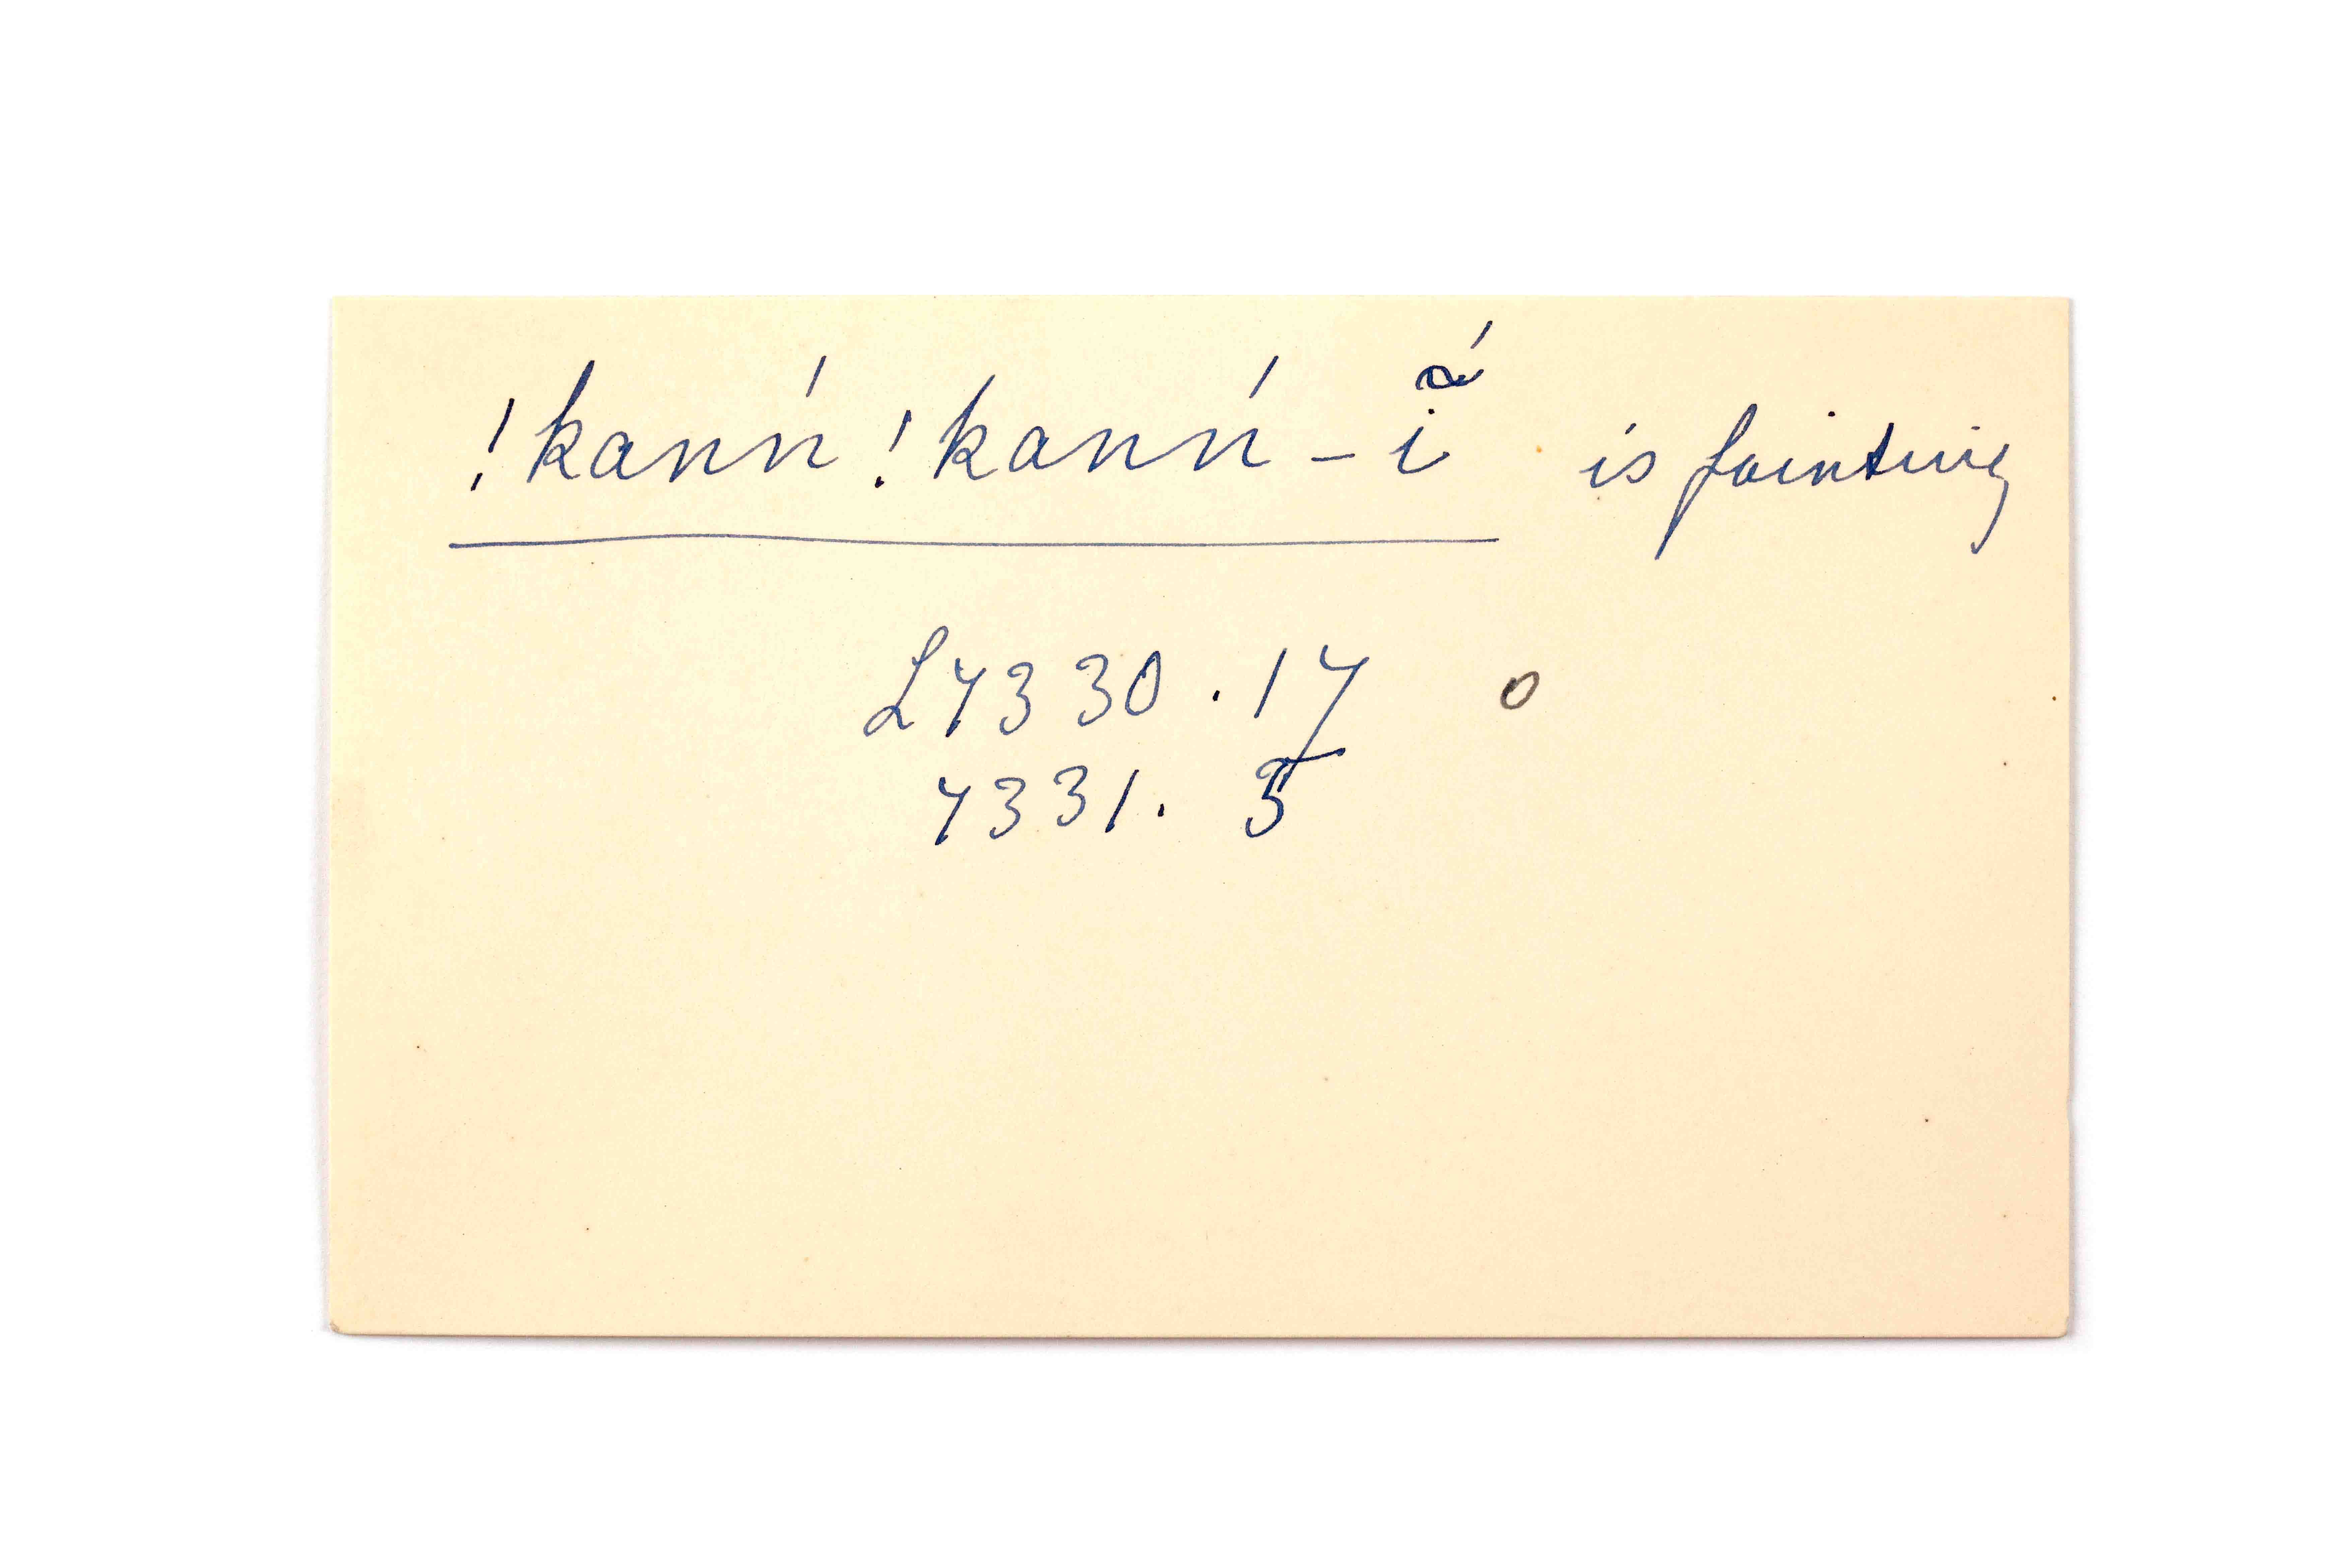 !kann̍ !kann̍ - i á is fainting
L7330 . 17 o
7331 . 5